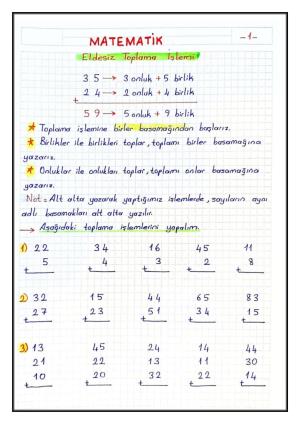 MATEMATİK
-1-
Eldesiz Toplama İşlemi
3 5 → 3 onluk + 5 birlik
2 4 → 2 onluk + 4 birlik
+
5 9 → 5 onluk + 9 birlik
* Toplama işlemine birler basamağından başlarız.
* Birlikler ile birlikleri toplar, toplamı birler basamağına
yazarız.
* Onluklar ile onlukları toplar, toplamı onlar basamağına
yazarız.
Not = Alt alta yazarak yaptığımız işlemlerde, sayıların aynı
adlı basamakları alt alta yazılır.
→ Aşağıdaki toplama işlemlerini yapalım.
1) 22 34 16 45 11
5 4 3 2 8
+ + + + +
2) 32 15 44 65 83
27 23 51 34 15
+ + + + +
3) 13 45 24 14 44
21 22 13 11 30
10 20 32 22 14
+ + + + +